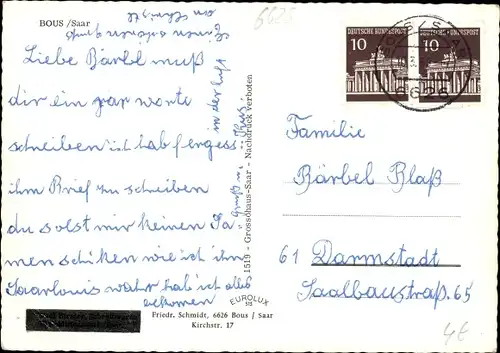 BOUS /Saar
6626
Liebe Bärbel muß
dir ein par worte
schreiben ist hab fergess
ihm Brief zu schreiben
du solst mir keinen Sa
men schiken wie ich ihn
Saarlouis wahr hab ich alles
bekomen
in der luft
1519 - Grossohaus-Saar - Nachdruck verboten
EUROLUX
Friedr. Schmidt, 6626 Bous / Saar
Kirchstr. 17
DEUTSCHE BUNDESPOST
10
DEUTSCHE BUNDESPOST
10
6626
Familie
Bärbel Blaß
61 Darmstadt
Saalbaustraß. 65
4€